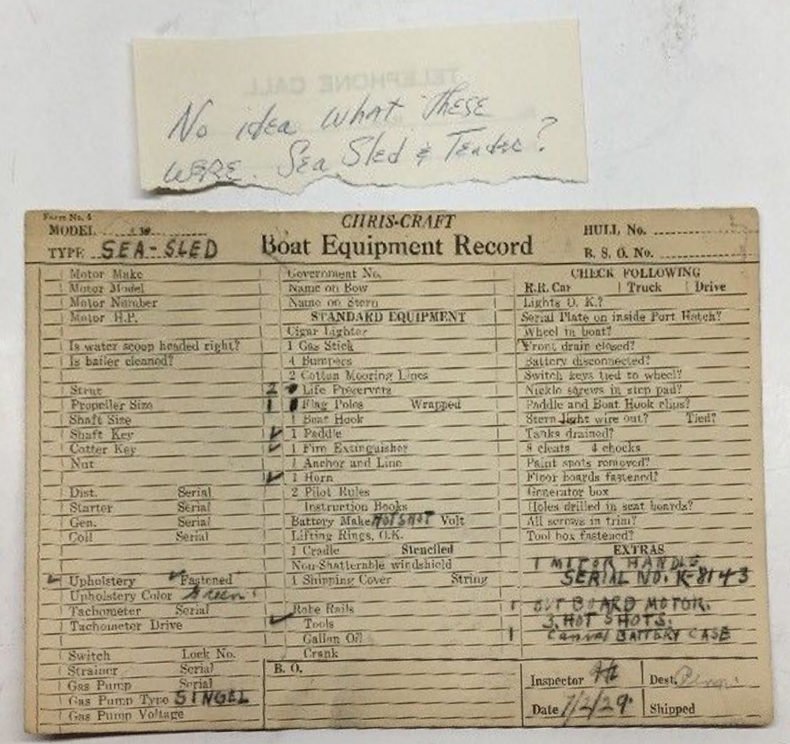 TELEPHONE CALL
No idea what these
were. Sea Sled & Tender?
Form No. 4
CHRIS-CRAFT
MODEL
HULL No.
TYPE SEA-SLED
Boat Equipment Record
B. S. O. No.
Motor Make
Motor Model
Motor Number
Motor H.P.
Is water scoop headed right?
Is bailer cleaned?
Strut
Propeller Size
Shaft Size
Shaft Key
Cotter Key
Nut
Dist. Serial
Starter Serial
Gen. Serial
Coil Serial
✓ Upholstery ✓ Fastened
Upholstery Color Green
Tachometer Serial
Tachometer Drive
Switch Lock No.
Strainer Serial
Gas Pump Serial
Gas Pump Type SINGEL
Gas Pump Voltage
Government No.
Name on Bow
Name on Stern
STANDARD EQUIPMENT
Cigar Lighter
1 Gas Stick
4 Bumpers
2 Cotton Mooring Lines
2 Life Preservers
1 Flag Poles Wrapped
1 Boat Hook
✓ 1 Paddle
✓ 1 Fire Extinguisher
1 Anchor and Line
✓ 1 Horn
2 Pilot Rules
Instruction Books
Battery Make HOTSHOT Volt
Lifting Rings, O.K.
1 Cradle Stenciled
Non-Shatterable windshield
1 Shipping Cover String
Robe Rails
✓ Tools
Gallon Oil
Crank
B. O.
CHECK FOLLOWING
R.R. Car Truck Drive
Lights O. K.?
Serial Plate on inside Port Hatch?
Wheel in boat?
Front drain closed?
Battery disconnected?
Switch keys tied to wheel?
Nickle screws in step pad?
Paddle and Boat Hook clips?
Stern light wire out? Tied?
Tanks drained?
8 cleats 4 chocks
Paint spots removed?
Floor boards fastened?
Generator box
Holes drilled in seat boards?
All screws in trim?
Tool box fastened?
EXTRAS
1 MOTOR HANDLE
SERIAL NO. K-8143
1 OUT BOARD MOTOR.
3 HOT SHOTS.
1 Canvas BATTERY CASE
Inspector
Dest.
Date 7/2/29
Shipped